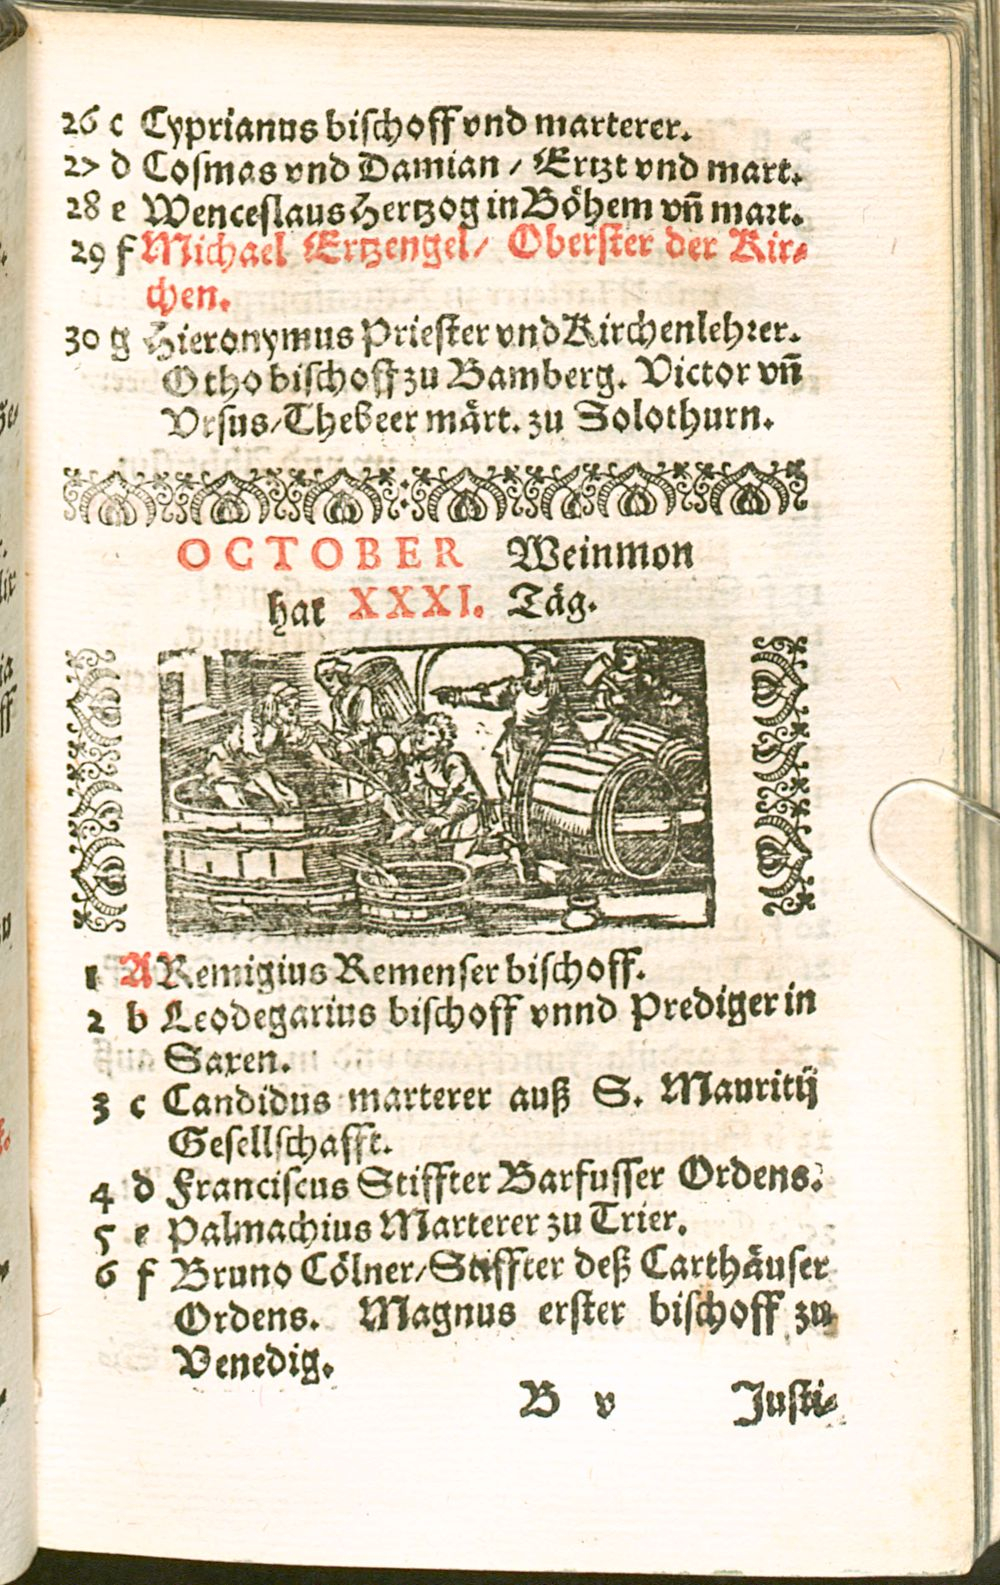 26 c Cyprianus bischoff vnd marterer.
27 d Cosmas vnd Damian / Ertzt vnd mart.
28 e Wenceslaus Hertzog in Böhem vñ mart.
29 f Michael Ertzengel / Oberster der Kir-
chen.
30 g Hieronymus Priester vnd Kirchenlehrer.
Otho bischoff zu Bamberg. Victor vñ
Vrsus / Thebeer märt. zu Solothurn.
OCTOBER Weinmon
hat XXXI. Täg.
1 A Remigius Remenser bischoff.
2 b Leodegarius bischoff vnnd Prediger in
Saxen.
3 c Candidus marterer auß S. Mauritij
Gesellschafft.
4 d Franciscus Stiffter Barfusser Ordens.
5 e Palmachius Marterer zu Trier.
6 f Bruno Cölner / Stiffter deß Carthäuser
Ordens. Magnus erster bischoff zu
Venedig.
B v Justi-